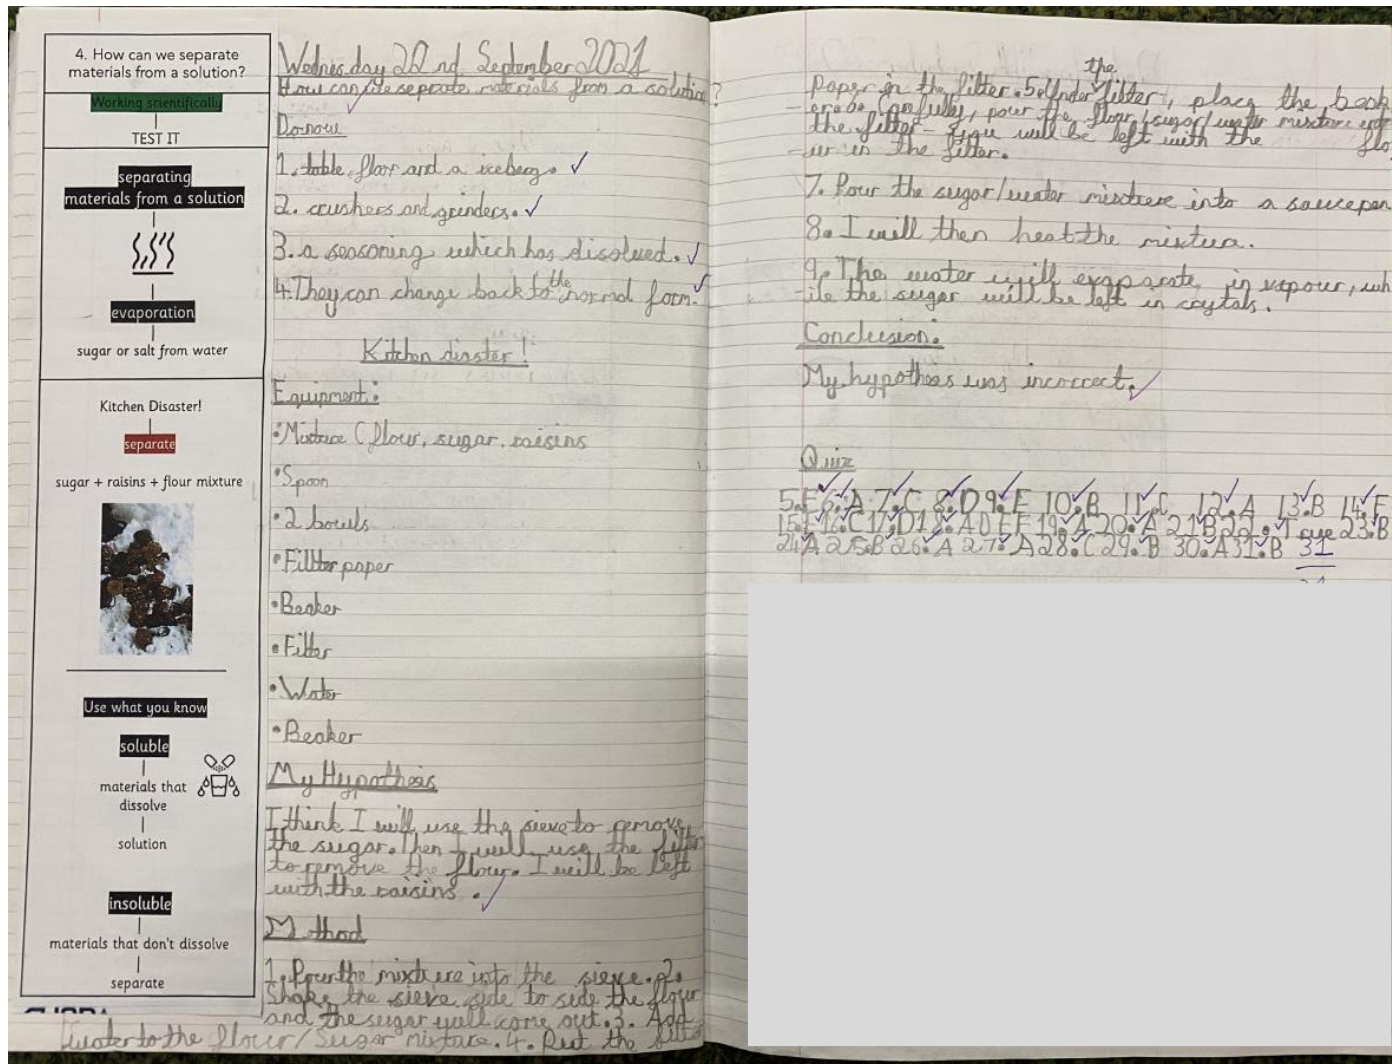 4. How can we separate
materials from a solution?
Working scientifically
TEST IT
separating
materials from a solution
evaporation
sugar or salt from water
Kitchen Disaster!
separate
sugar + raisins + flour mixture
Use what you know
soluble
materials that
dissolve
solution
insoluble
materials that don't dissolve
separate
Wednesday 22nd September 2021
How can we seprate materials from a solution?
Do now
1. table, floor and a iceberg.
2. crushers and grinders.
3. a seasoning which has disolved.
4. They can change back to the normal form.
Kitchen disaster!
Equipment:
•Mixture ( flour, sugar, raisins
•Spoon
•2 bowls
•Fillter paper
•Beaker
•Filter
•Water
•Beaker
My Hypothesis
I think I will use the sieve to remove
the sugar. Then I will use the filter
to remove the flour. I will be left
with the raisins.
Method
1. Pour the mixture into the sieve. 2.
Shake the sieve side to side the flour
and the sugar will come out. 3. Add
water to the flour/sugar mixture. 4. Put the filter
paper in the filter. 5. Under the filter, place the beak
-er. 6. Carefully, pour the flour/sugar/water mixture
the filter- will be left with the flo
-ur in the filter.
7. Pour the sugar/water mixture into a saucepan
8. I will then heat the mixture.
9. The water will evaparate in vapour, wh
-ile the sugar will be left in crystals.
Conclusion:
My hypothesis was incorrect.
Quiz
5.E 6.A 7.C 8.D 9.E 10.B 11.C 12.A 13.B 14.F
15.E 16.C 17.D 18.ADEF 19.A 20.A 21.B 22.True 23.B
24.A 25.B 26.A 27.A 28.C 29.B 30.A 31.B 31